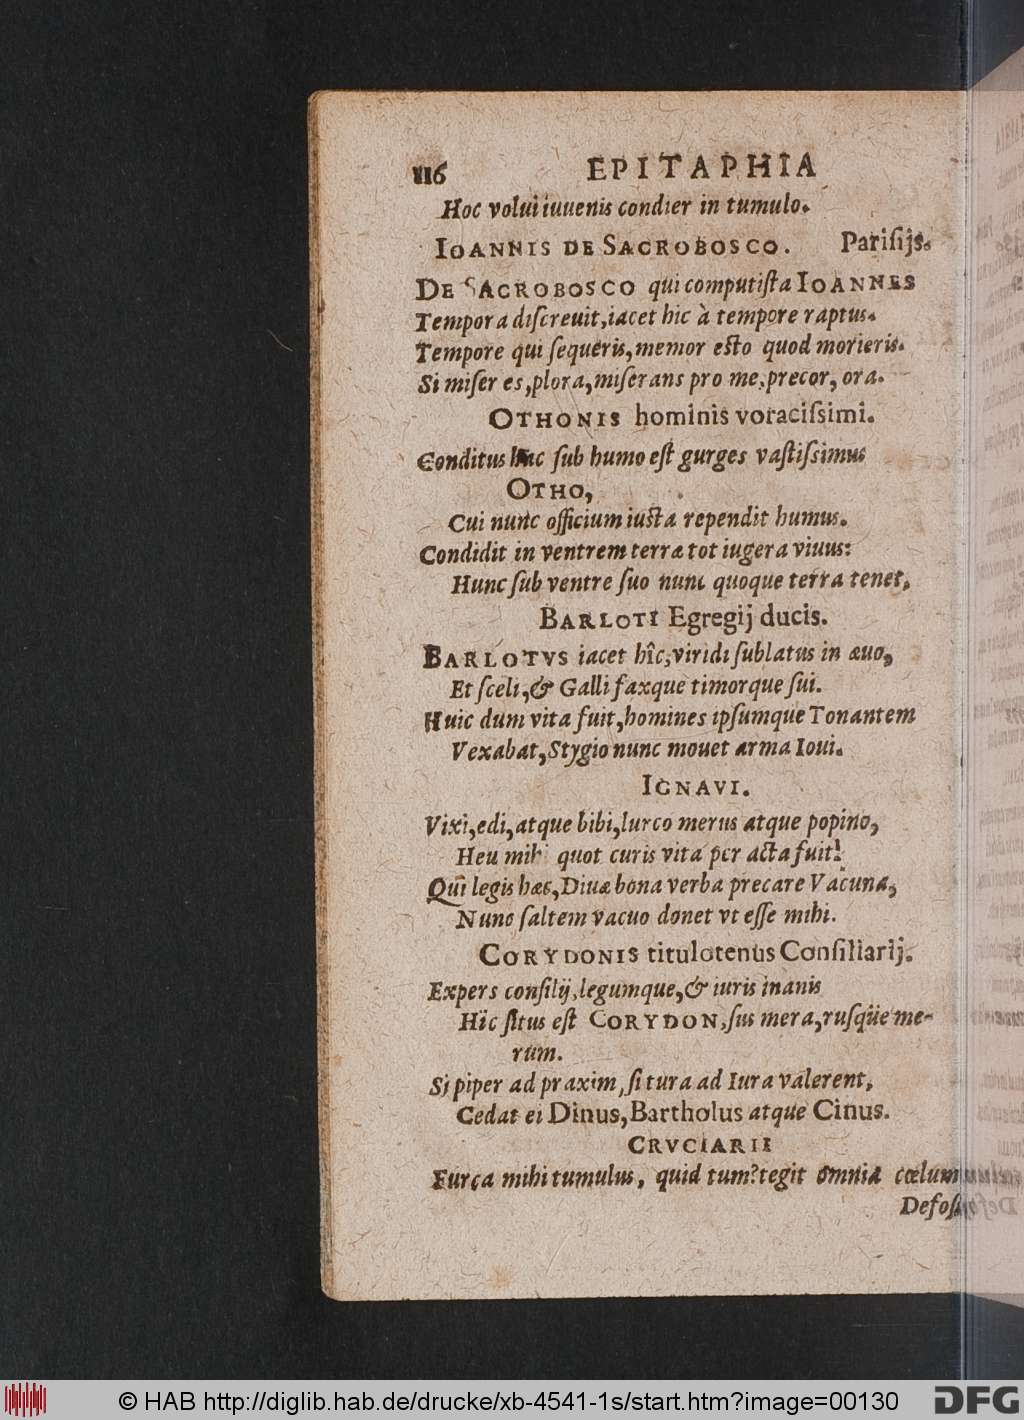 116 EPITAPHIA
Hoc volui iuuenis condier in tumulo.
IOANNIS DE SACROBOSCO. Pariſijs.
DE SACROBOSCO qui computiſta IOANNES
Tempora diſcreuit, iacet hic à tempore raptus.
Tempore qui ſequeris, memor esto quod morieris.
Si miſer es, plora, miſerans pro me, precor, ora.
OTHONIS hominis voraciſsimi.
Conditus hac ſub humo eſt gurges vaſtiſsimus
OTHO,
Cui nunc officium iusta rependit humus.
Condidit in ventrem terræ tot iugera viuus:
Hunc ſub ventre ſuo nunc quoque terra tenet.
BARLOTI Egregij ducis.
BARLOTVS iacet hîc, viridi ſublatus in æuo,
Et ſceli, & Galli faxque timorque ſui.
Huic dum vita fuit, homines ipſumque Tonantem
Vexabat, Stygio nunc mouet arma Ioui.
IGNAVI.
Vixi, edi, atque bibi, lurco merus atque popino,
Heu mihi quot curis vita per acta fuit!
Qui legis hæc, Diuæ bona verba precare Vacunæ,
Nunc ſaltem vacuo donet vt eſſe mihi.
CORYDONIS titulotenus Conſiliarij.
Expers conſilij, legumque, & iuris inanis
Hic ſitus eſt CORYDON, ſus mera, ruſque me-
rum.
Si piper ad praxim, ſi tura ad Iura valerent,
Cedat ei Dinus, Bartholus atque Cinus.
CRVCIARII
Furca mihi tumulus, quid tum? tegit omnia cœlum
Defoſ
© HAB http://diglib.hab.de/drucke/xb-4541-1s/start.htm?image=00130 DFG